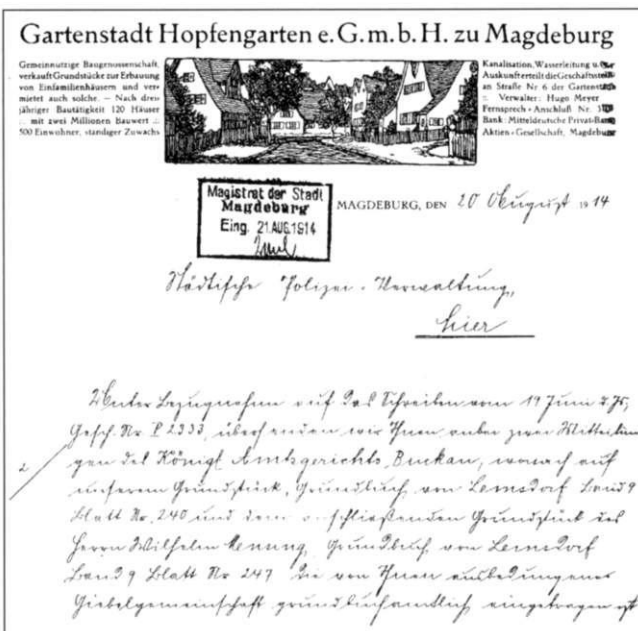 Gartenstadt Hopfengarten e.G.m.b.H. zu Magdeburg
Gemeinnützige Baugenossenschaft,
verkauft Grundstücke zur Erbauung
von Einfamilienhäusern und ver-
mietet auch solche. — Nach drei-
jähriger Bautätigkeit 120 Häuser
.. mit zwei Millionen Bauwert ..
500 Einwohner, ständiger Zuwachs
Kanalisation, Wasserleitung
Auskunft erteilt die
an Straße Nr 6 der
:: Verwalter: Hugo Meyer
Fernsprech-Anschluß Nr.
Bank: Mitteldeutsche Privat-
Aktien-Gesellschaft, Magdeburg
Magistrat der Stadt
Magdeburg
Eing. 21.AUG.1914
MAGDEBURG, DEN 20 August 1914
Städtische Polizei-Verwaltung,
hier
Unter Bezugnahme auf das Schreiben vom 19 Juni d. Js,
Gesch. Nr. P 2333, übersenden wir Ihnen anbei zwei Mitteilun
2
gen des Königl. Amtsgerichts Buckau, wonach auf
unserem Grundstück, Grundbuch von Lemsdorf Band 9
Blatt Nr. 240 und dem anschließenden Grundstück des
Herrn Wilhelm Grundbuch von Lemsdorf
Band 9 Blatt Nr 247 die von Ihnen ausbedungene
Giebelgemeinschaft grundbuchamtlich eingetragen ist